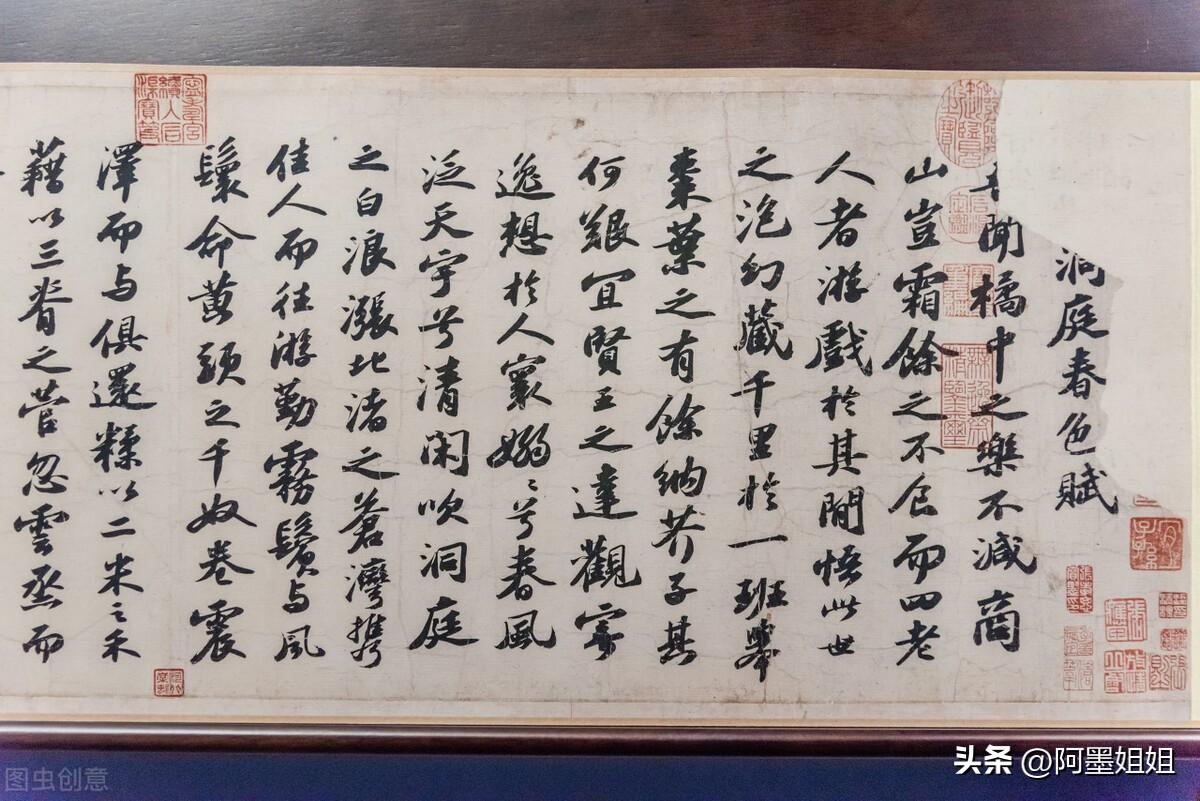 洞庭春色賦
聞橘中之樂不減商
山豈霜餘之不食而四老
人者游戲於其間悟此世
之泡幻藏千里於一班舉
棗葉之有餘納芥子其
何艱宜賢王之達觀寄
逸想於人寰嫋〻兮春風
泛天宇兮清閑吹洞庭
之白浪漲北渚之蒼灣攜
佳人而往游勤霧鬢与風
鬟命黃頭之千奴卷震
澤而与俱還糅以二米之禾
藉以三脊之菅忽雲烝而
头条 @阿墨姐姐
图虫创意